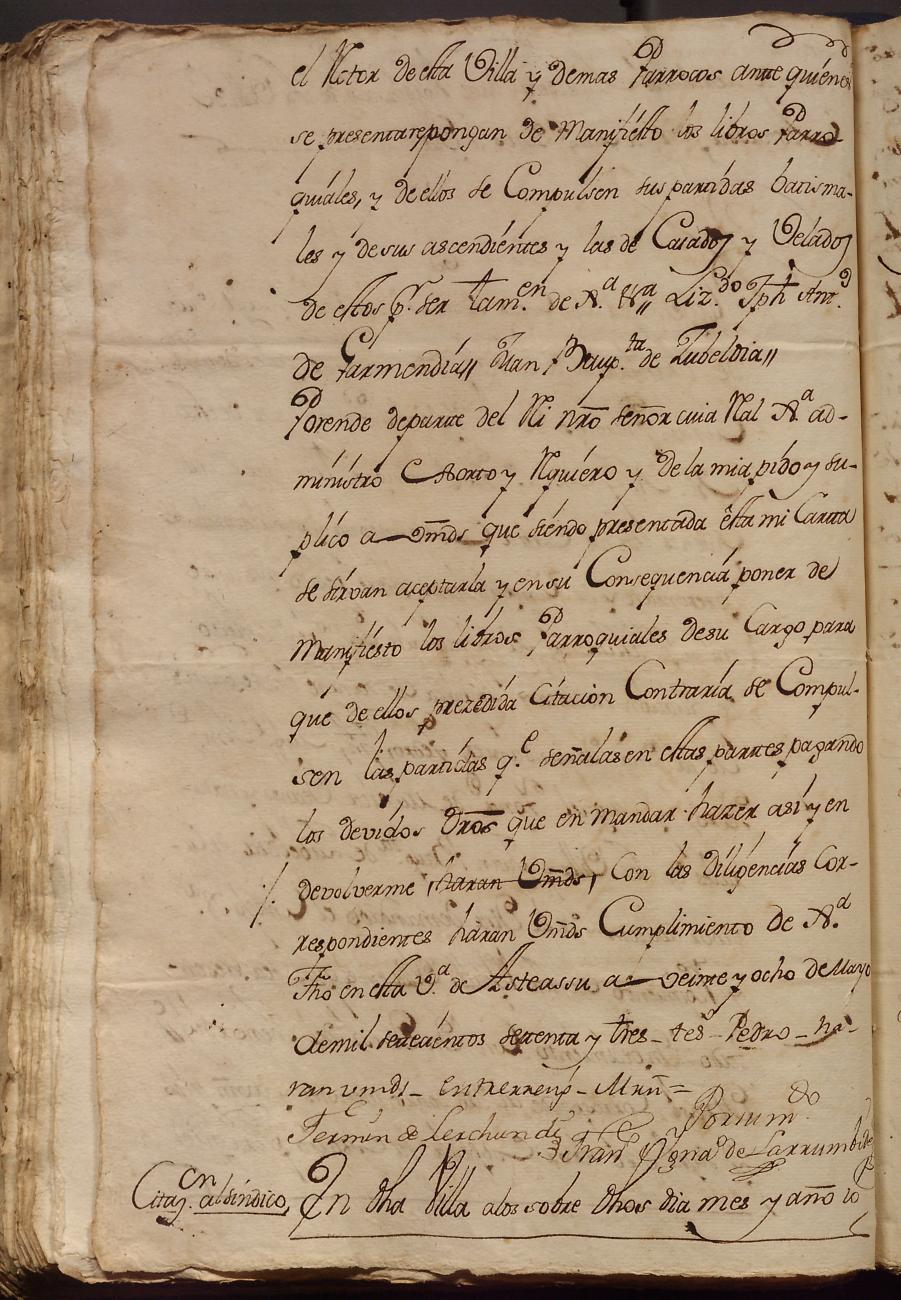 el Rctor de esta Villa y demas Parrocos ante quienes
se presentare pongan de Manifiesto los libros Parro-
quiales, y de ellos se Compulsen sus partidas batisma-
les y de sus ascendientes y las de Casados y Velados
de estos pr. ser Tamen. de Aa. Liz.do Jph Anto.
de Garmendia // Juan Baup.ta de Zubeldia //
Porende departe del Ri nro señor cuia Ral Aa. ad-
ministro Exorto y Rquiero y de la mia pido y su-
plico a Vmds que siendo presentada esta mi Carta
se sirvan aceptarla y en su Consequencia poner de
Manifiesto los libros Parroquiales de su Cargo para
que de ellos prezedida Citacion Contraria se Compul-
sen las partidas q.e señalasen estas partes pagando
los devidos Dros que en mandar hazer asi y en
devolverme haran Vmds, Con las Diligencias Cor-
respondientes haran Vmds Cumplimiento de Aa.
Fho en esta V.a de Asteassu a veinte y ocho de Mayo
de mil setecientos setenta y tres - tes - Pedro - ha-
ran vmds - entrerrens -
Fermin de Lerchundi Por su m.do
Fran Igna.o de Larrumbide
Citaz.cn al sindico, En dha Villa alos sobre dhos dia mes y año io